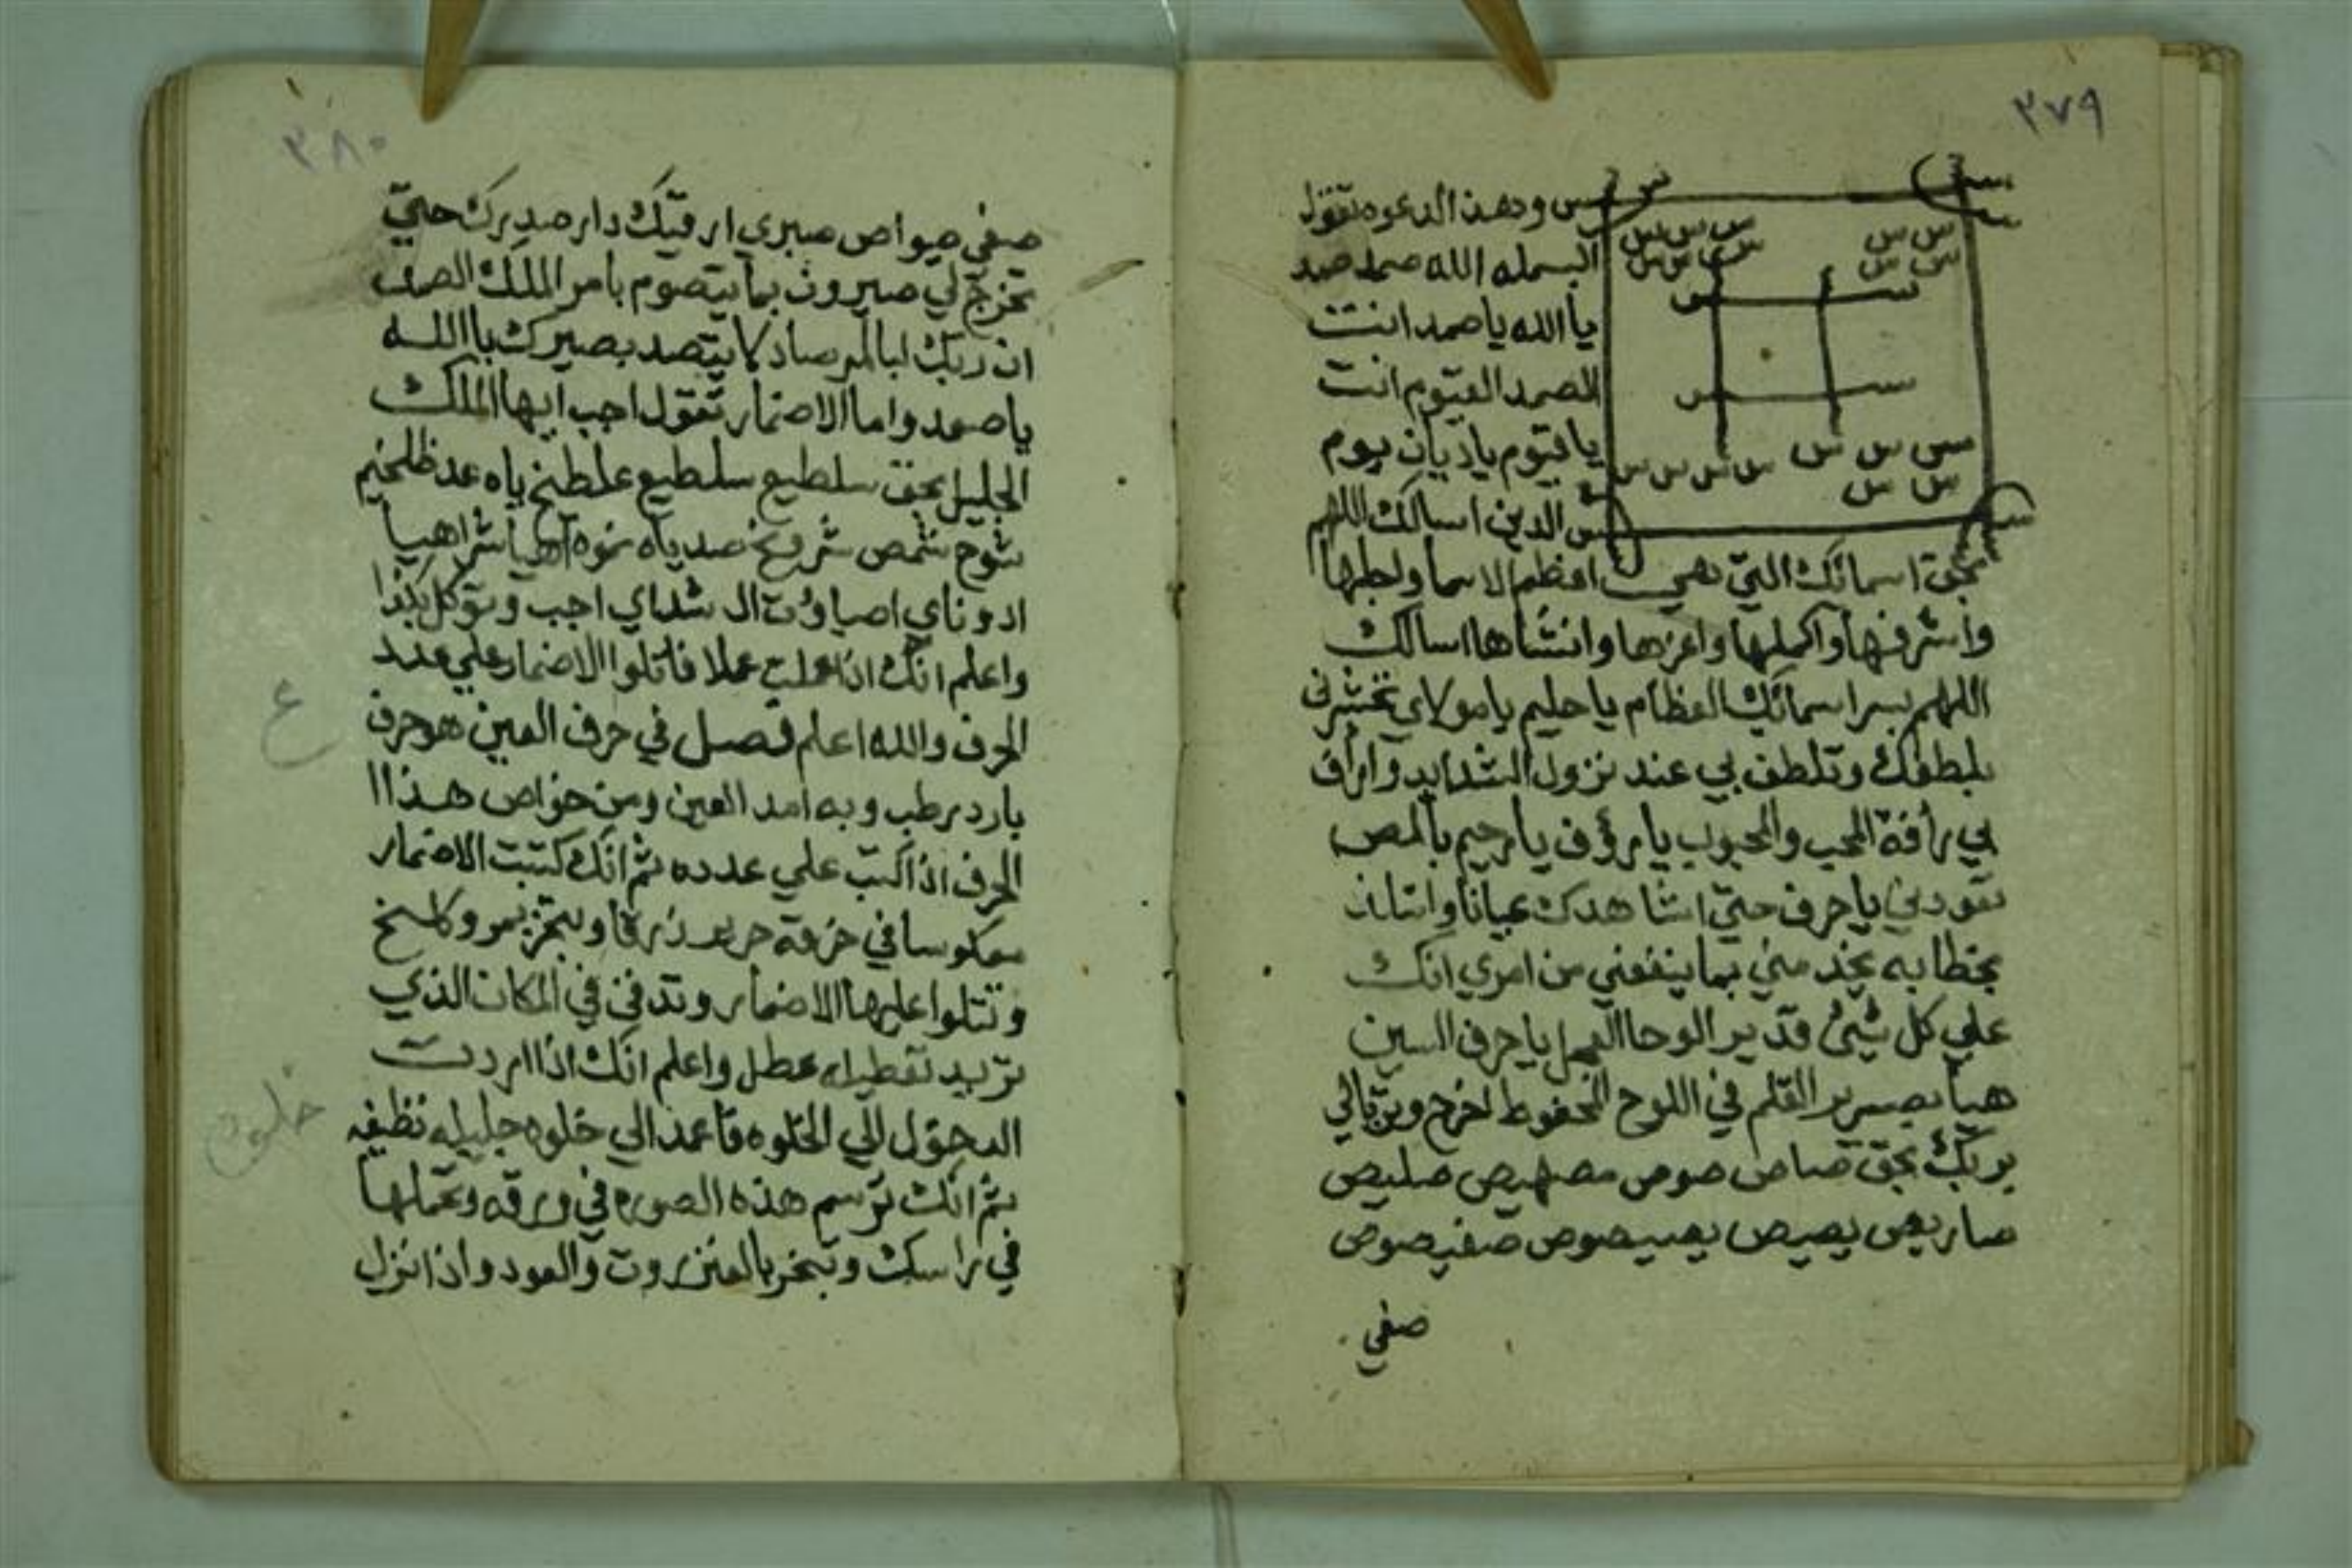 ٣٧٩
س س
س س س س س س
س س س س س س
س س
س س
س س س س س س س س
س س
س س
وهذا الدعوه تقول
البسمله الله صمد صمد
يا الله يا صمد انت
الصمد القيوم انت
يا قيوم يا ديان يوم
الدين اسالك اللهم
بحق اسمائك التي هي اعظم الاسما واجلها
واشرفها واكملها واعزها وانشاها اسالك
اللهم بسر اسمائك العظام يا حليم يا مولاي تحشرني
بلطفك وتلطف بي عند نزول الشدايد وارأف
بي رأفة المحب والمحبوب يا رؤف يا رحيم بالمص
يا حرف حتي اشاهدك عيانا واتلذذ
بخطابه يخذ مني بما ينفعني من امري انك
علي كل شيئ قدير الوحا العجل يا حرف السين
هيا بصرير القلم في اللوح المحفوظ اخرج
بربك بحق صاص صوص مصهيص صليص
صاريص يصيص يصيصوص صفيصوص
صفي
٣٨٠
صفي صواص صبري ار فتيك دار صديرك حتي
تخرج لي صيرون بما يتصوم بامر الملك الصمد
ان ربك لبالمرصاد كا يتصد بصيرك باالله
يا صمد واما الاضمار تقول اجب ايها الملك
الجليل بحق سلطيع سلطيع علطيخ ياه عد ظلخيم
شوح شمص شروخ صد ياه نموه اهيا شراهيا
ادوناي اصباوت ال شداي اجب وتوكل بكذا
واعلم انك اذا عملت عملا فاتلوا الاضمار علي عدد
الحرف والله اعلم فصل في حرف العين هو حرف
بارد رطب وبه امد العين ومن خواص هذا ا
الحرف اذا كتب علي عدده ثم انك كتبت الاضمار
معكوسا في خرقة حرير زرقا وبخر بمر وكاسخ
وتتلوا عليها الاضمار وتدفن في المكان الذي
تريد تعطيله عطل واعلم انك اذا اردت
الدخول الي الخلوه فاعمد الي خلوه جليله نظيفه
ثم انك ترسم هذه الصوره في ورقه وتحملها
في راسك وتبخر بالعنزروت والعود واذا نزل
ع
خلوة